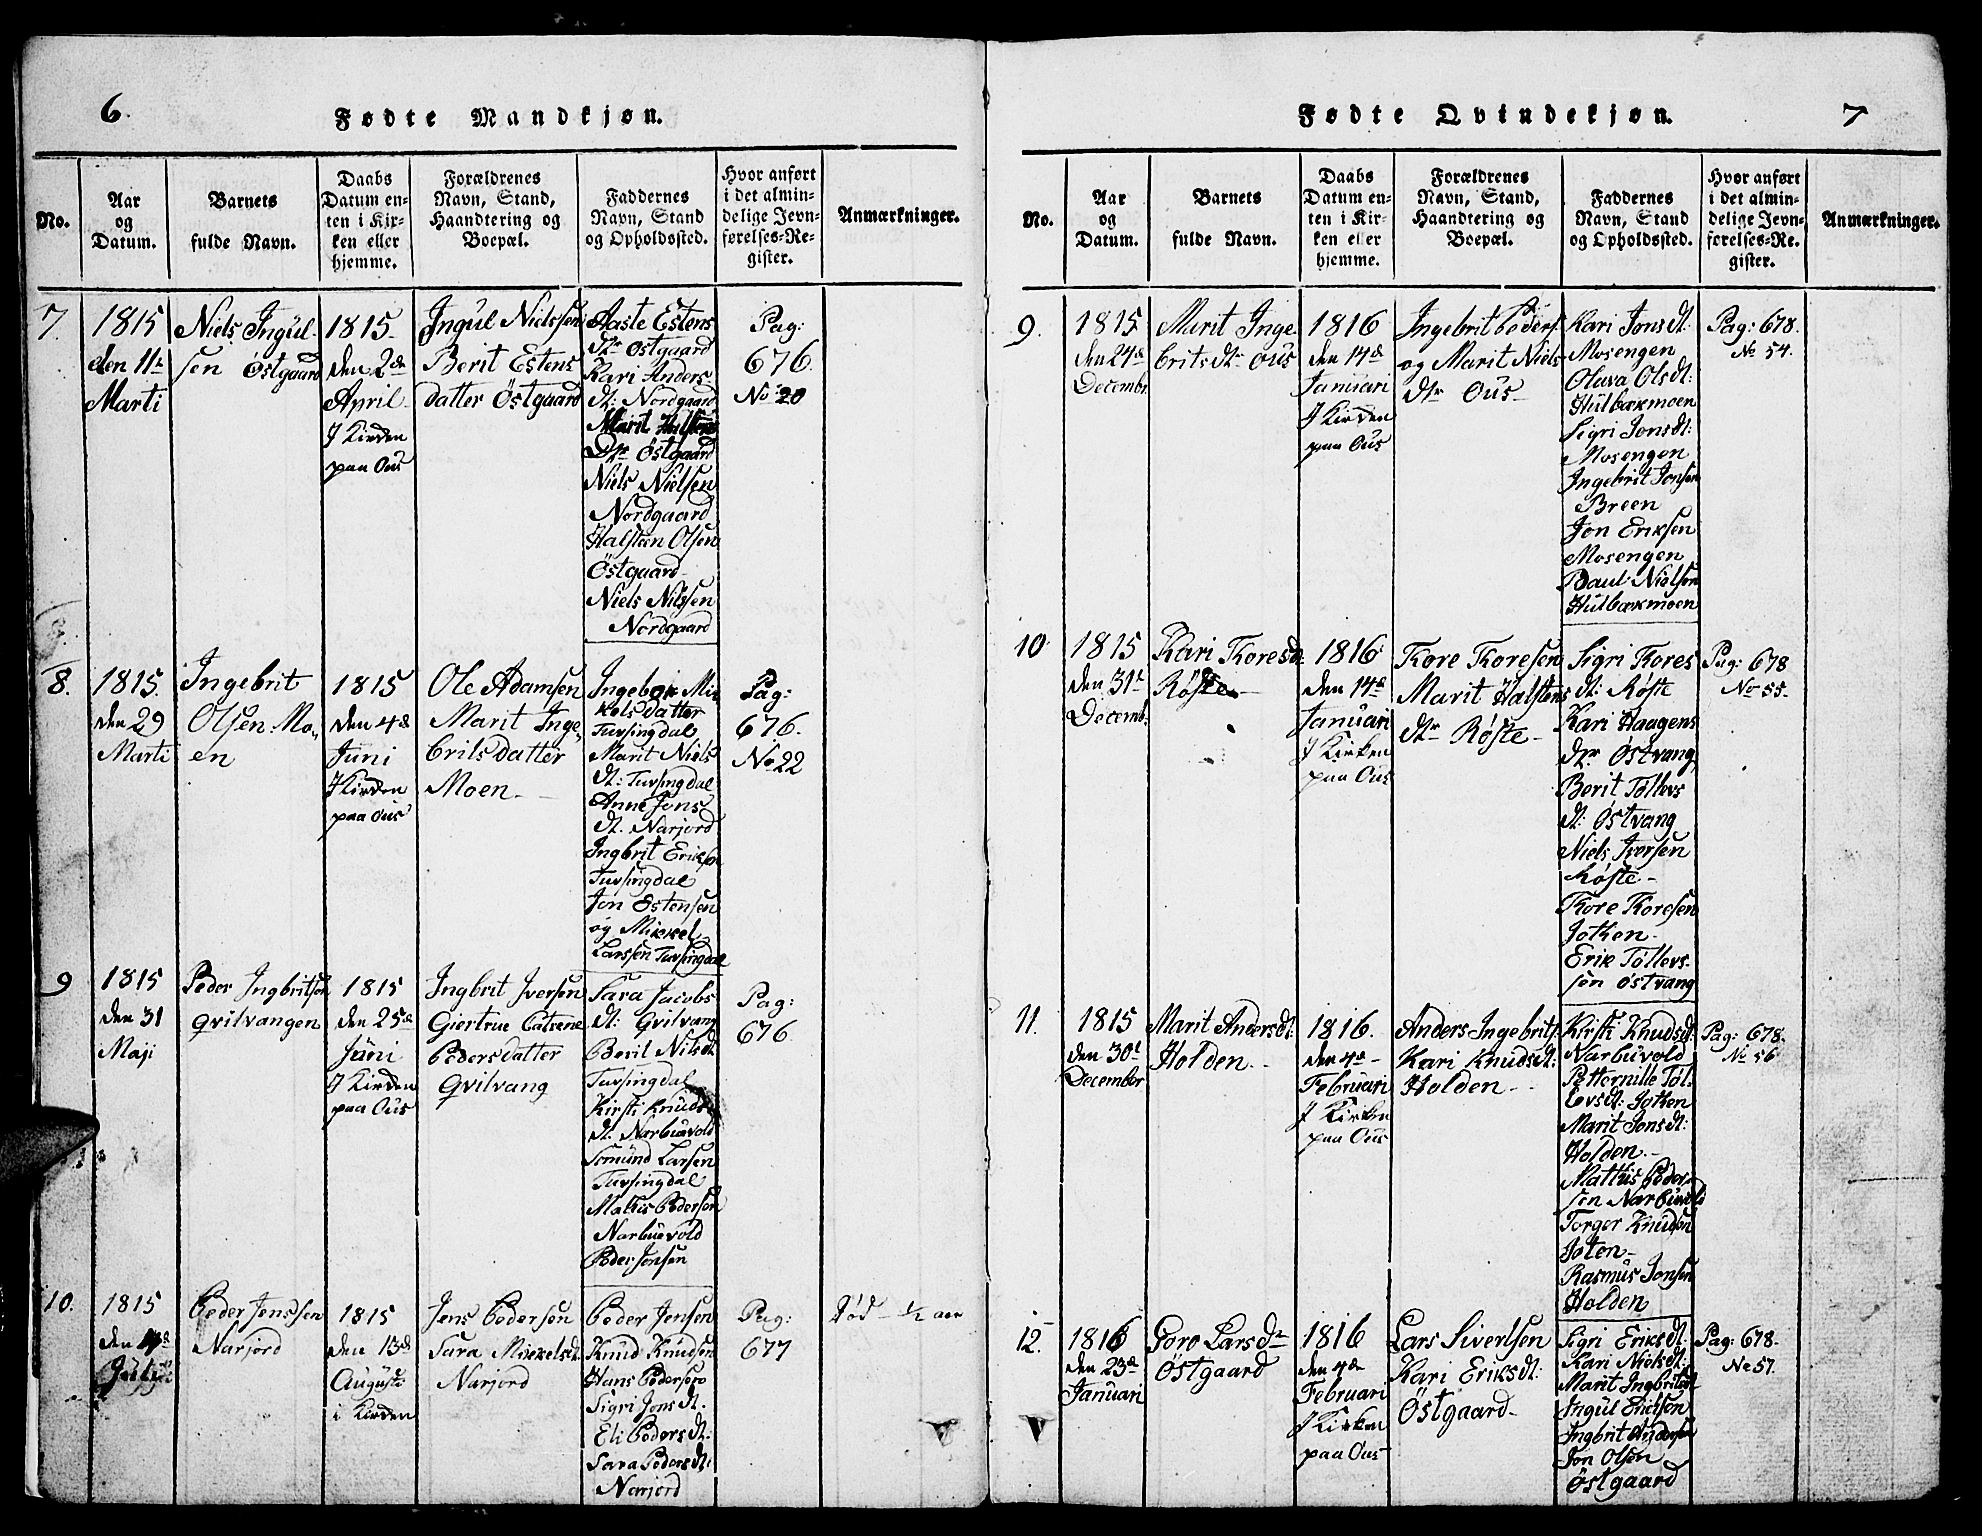 6.
Fødte Mandkjøn.
No.
Aar
og
Datum.
Barnets
fulde Navn.
Daabs
Datum en-
ten i Kir-
ken eller
hjemme.
Forældrenes
Navn, Stand,
Haandtering og
Boepæl.
Faddernes
Navn, Stand
og Opholdssted.
Hvor anført
i det almin-
delige Jevn-
førelses-Re-
gister.
Anmærkninger.
7.
1815
den 11te
Marti
Niels Ingül-
sen Östgaard
1815
den 2de
April
I Kirken
paa Ous
Ingül Nielssen
Berit Estens
datter Östgaard
Aaste Estens
dtr Östgaard
Kari Anders
dt: Nordgaard
Marit
Dtr Östgaard
Niels Nielsen
Nordgaard
Halsteen Olsen
Östgaard
Niels Nilssen
Nordgaard
Pag:
676.
No 20
8.
1815.
den 29
Marti
Ingebrit
Olsen Mo-
en
1815
den 4de
Juni
I Kirken
paa Ous
Ole Adamsen
Marit Inge-
britsdatter
Moen
Ingebor Mi-
kelsdatter
Tufsingdal
Marit Niels
dt: Tufsingdal
Anne Jons
dt. Narjord
Ingbrit Eriksen
Tufsingdal
Jon Östensen
og Mikkel
Larssen Tufsingdal
Pag:
676.
No 22
9
1815
den 31
Maji
Peder Ingbritsen
Qvilvangen
1815
den 25de
Jüni
I Kirken
paa Ous
Ingbrit Iversen
Giertrue Catrene
Pedersdatter
Qvilvang
Sara Jacobs
dt: Qvilvang
Beril Nilsdt
Tufsingdal
Kirsti Knuds
dt. Narbuevold
Somünd Larsen
Tufsingdal
Mattis Pedersen
Narbuevold
Peder Jonsen
Pag:
676
10.
1815
Peder Jenssen
Narjord
1815
den 13de
Augusti
i Kirken
Jens Pedersen
Sara Mikkelsdt.
Narjord
Peder Jensen
Knud Knudsen
Hans Pedersen
Sigri Jons dt.
Eli Peders dt:
Sara Peders dt:
Narjord
Pag:
677
Død - ½ aar
Fødte Qvindekjøn.
7
No.
Aar
og
Datum.
Barnets
fulde Navn.
Daabs
Datum en-
ten i Kir-
ken eller
hjemme.
Forældrenes
Navn, Stand,
Haandtering og
Boepæl.
Faddernes
Navn, Stand
og Opholdssted.
Hvor anført
i det almin-
delige Jevn-
førelses-Re-
gister.
Anmærkninger.
9.
1815
den 24de
Decembr.
Marit Inge
britsdtr Ous
1816
den 14de
Januari
I Kirken
paa Ous
Ingebrit Peders.
og Marit Niels
dtr Ous
Kari Jonsdt:
Mosengen
Olava Olsdt:
Hulbækmoen
Sigri Jonsdt:
Mosengen
Ingebrit Jonsen
Breen
Jon Eriksen
Mosengen
Paul Nielsen
Hulbækmoen
Pag: 678.
No 54.
10.
1815
den 31te
Decemb.
Kari Toresdt
Røste
1816
den 14de
Januari
I Kirken
paa Ous
Tore Toresen
Marit Halstens
dtr Røste
Sigri Tores
dt: Røste
Kari Haagens
dtr Østvang
Berit Töllevs
dt: Østvang
Niels Iversen
Røste
Tore Toresen
Jotken
Erik Töllevs-
sen Østvang
Pag: 678
No 55.
11.
1815
den 30te
December
Marit Andersdt:
Holden
1816.
den 4de
Februari
I Kirken
paa Ous
Anders Ingebritz.
Kari Knudsdt:
Holden
Kirsti Knudsdt:
Narbuvold
Petternille Töl-
levsdt: Jotken
Marit Jonsdt:
Holden
Mathis Peder-
sen Narbuvold
Torger Knudsen
Joten
Rasmus Jonsen
Holden
Pag: 678.
No 56
12.
1816
den 23de
Januari
Goro Larsdtr
Östgaard
1816
den 4de
Februari
I Kirken
paa Ous
Lars Sivertsen
Kari Eriksdt:
Östgaard
Sigri Eriksdt:
Kari Nielsdt:
Marit Ingbritsdt
Ingul Ericksen
Ingbrit Andersen
Jon Olsen
Östgaard
Pag: 678.
No 57.